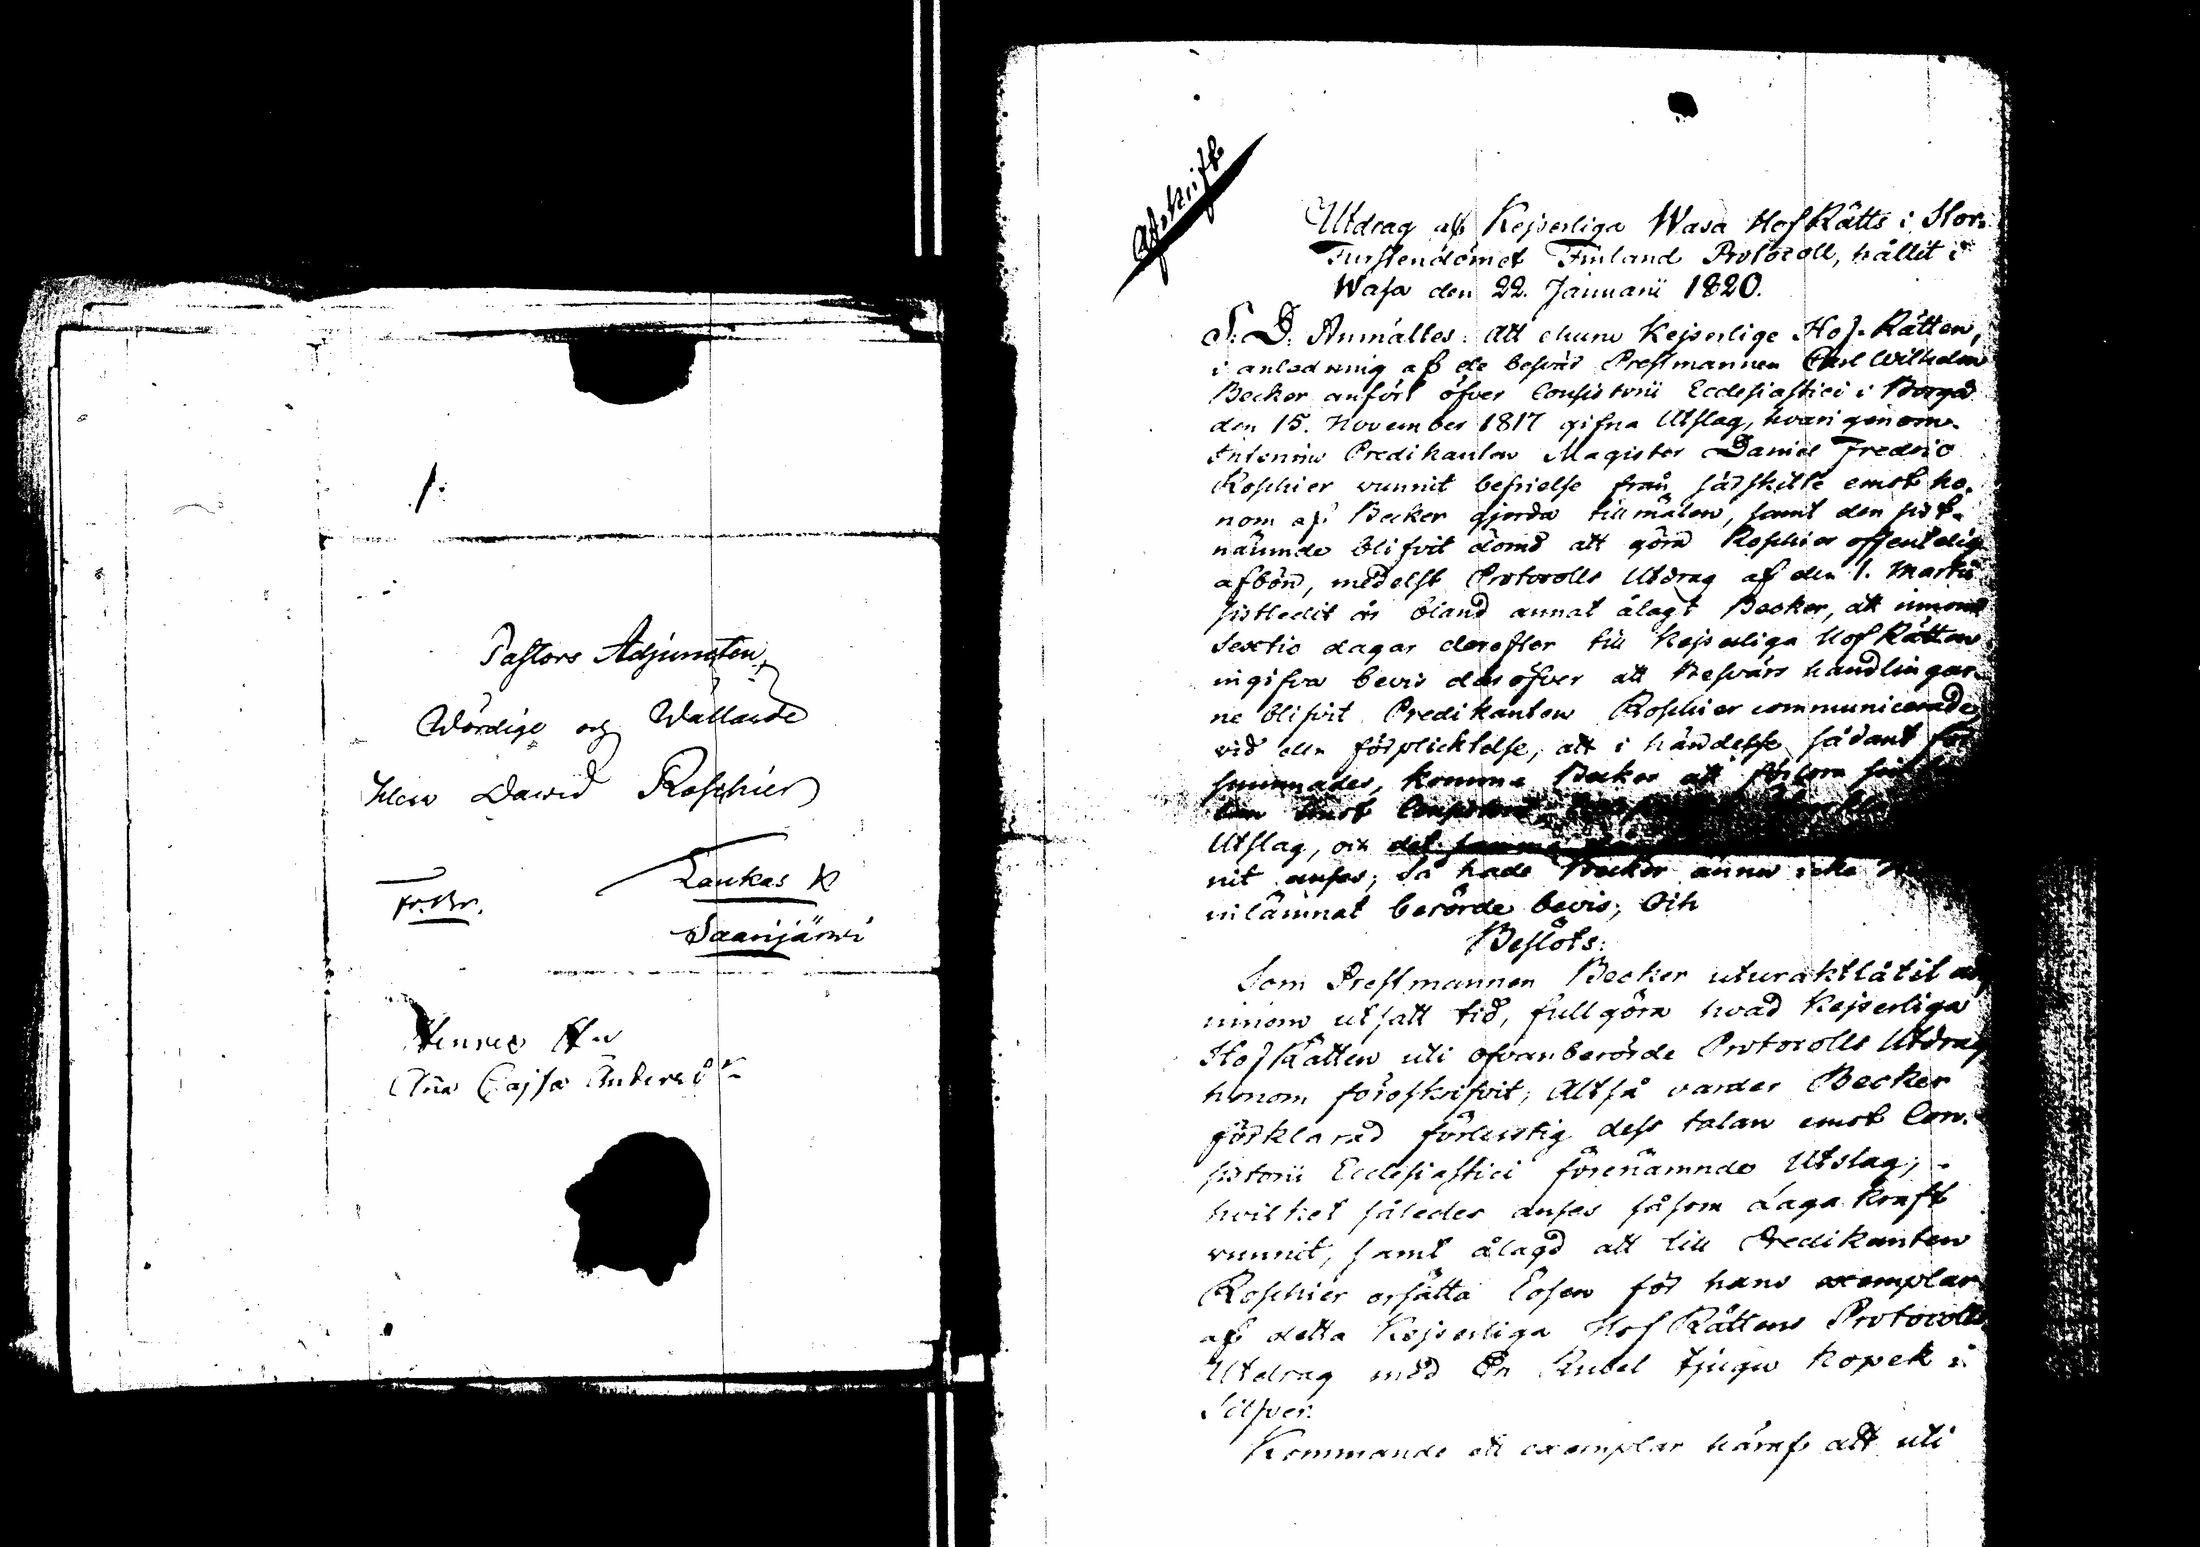 1.
Pastors Adjuncten,
Wördige och Wällärde
Herr David Roschier
Fr. Br.
Laukas K
Saarijärwi
Anna Cajsa Andersdr
Afskrift
Utdrag af Kejserliga Wasa HofRätts i Stor-
Furstendömet Finland Protocoll, hållit i
Wasa den 22. Januarii 1820.
S. D. Anmältes: Att churu Kejserlige Hof-Rätten,
i anledning af de besvär Prestmannen Carl Wilhelm
Becker anfört öfver Consistorii Ecclesiastici i Borgå
den 15. November 1817 gifna Utslag, hvarigenom
Predikanten Magister Daniel Fredric
Roschier vunnit befrielse från särskilte emot ho-
nom af Becker gjorda tillmälen, samt den sist-
nämnde blifvit dömd att göra Roschier offentelig
afbön, medelst Protocolls Utdrag af den 1. Martii
sistledit år bland annat ålagt Becker, att innom
Sextio dagar derefter till Kejserliga HofRätten
ingifva bevis deröfver att Besvärs handlingar-
ne blifvit Predikanten Roschier communicerade,
vid den förplicktelse, att i händelse sådant för
summades, komme Becker att förlora sin
lan emot
Utslag, och det samma
nit anses; Så hade Becker ännu icke
inlämnat berörde bevis; Och
Beslöts:
Som Prestmannen Becker uturaktlåtit att
innom utsatt tid, fullgöra hvad Kejserliga
HofRätten uti ofvanberörde Protocolls Utdrag
honom föreskrifvit; Altså varder Becker
förklarad förlustig dess talan emot Con-
sistorii Ecclesiastici förenämnde Utslag; -
hvilket således anses såsom Laga kraft
vunnit, samt ålagd att till Predikanten
Roschier ersätta Lösen för hans exemplar
af detta Kejserliga HofRättens Protocolls
Utdrag med En Rubel tjugu kopek i
Silfver.
Kommande ett exemplar häraf att uti